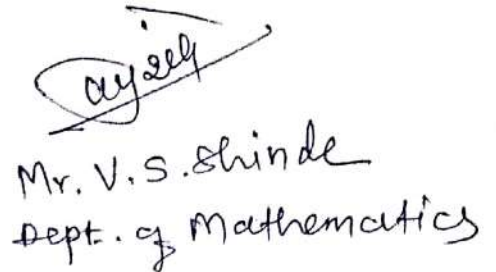 Mr. V. S. Shinde
Dept. of Mathematics